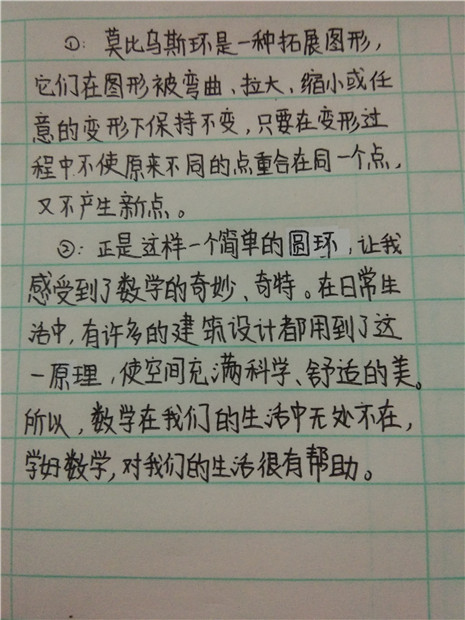 ①：莫比乌斯环是一种拓展图形，
它们在图形被弯曲、拉大、缩小或任
意的变形下保持不变，只要在变形过
程中不使原来不同的点重合在同一个点，
又不产生新点。
②：正是这样一个简单的圆环，让我
感受到了数学的奇妙、奇特。在日常生
活中，有许多的建筑设计都用到了这
一原理，使空间充满科学、舒适的美。
所以，数学在我们的生活中无处不在，
学好数学，对我们的生活很有帮助。